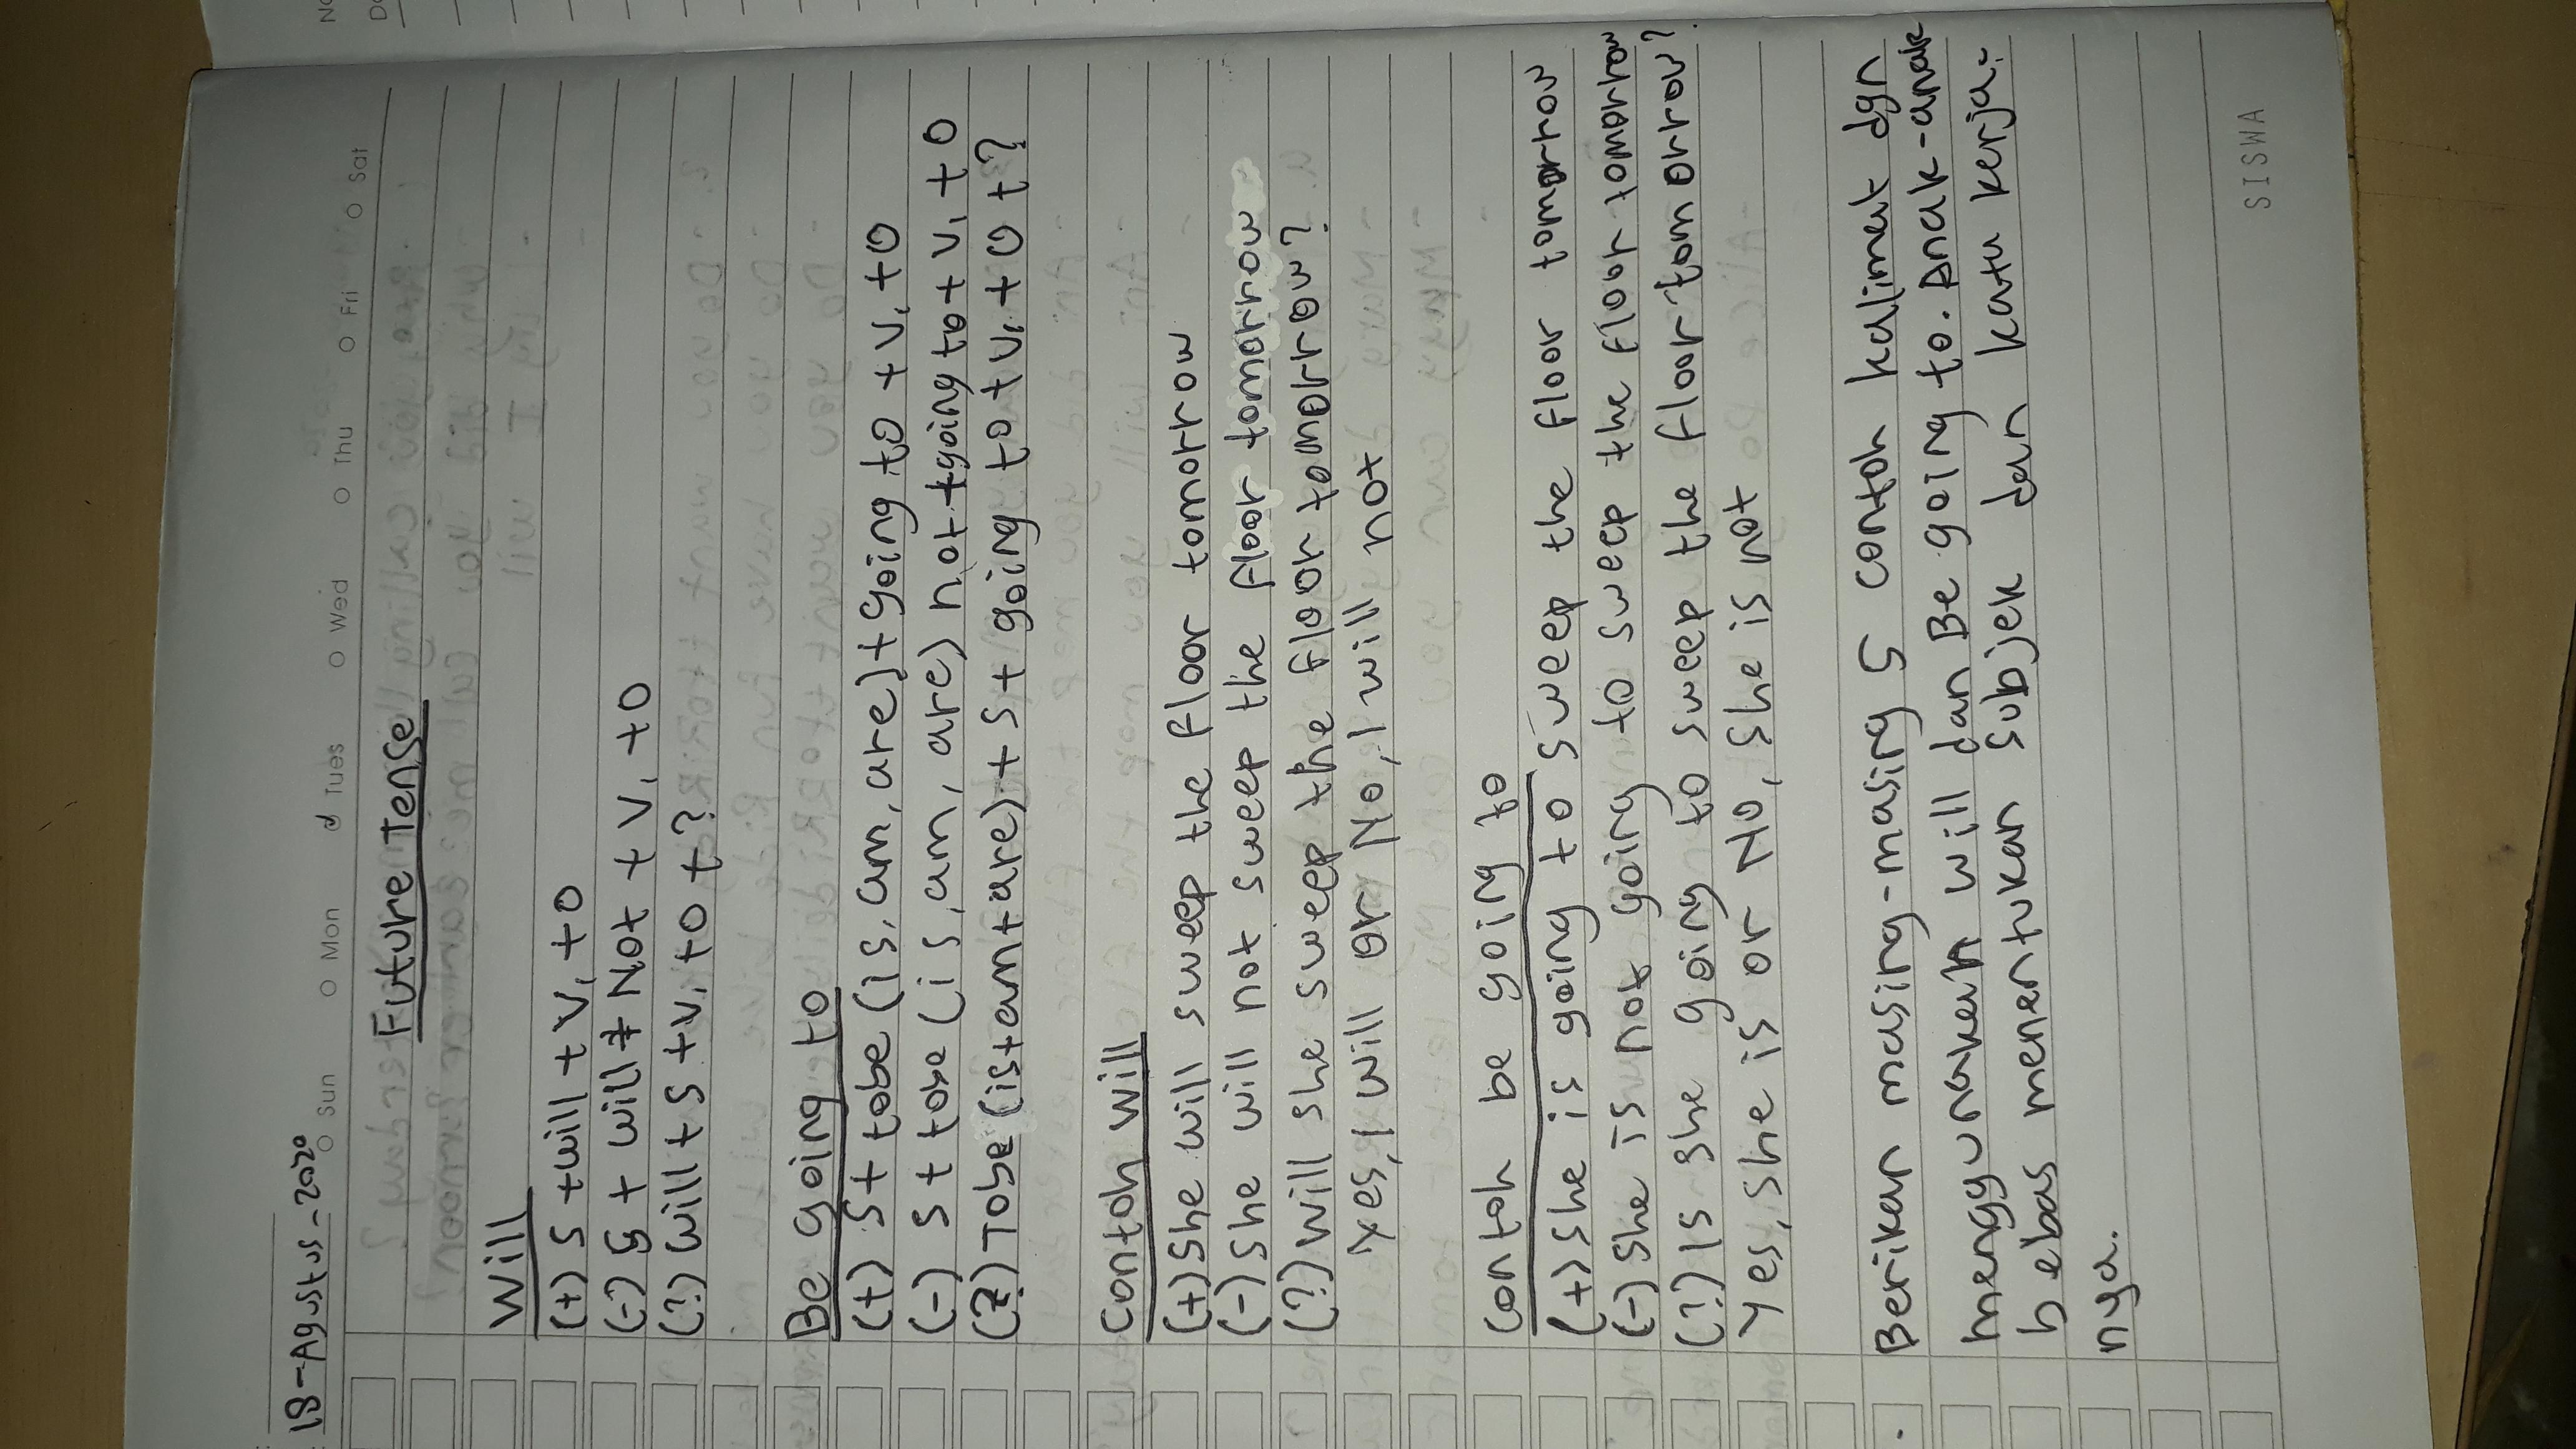 18-Agustus-2020
Sun Mon Tues Wed Thu Fri Sat
Future Tense
Will
(+) S + will + V1 + O
(-) S + will + Not + V1 + O
(?) Will + S + V1 + O + ?
Be going to
(+) S + tobe (is, am, are) + going to + V1 + O
(-) S + tobe (is, am, are) not + going to + V1 + O
(?) Tobe (is + am + are) + S + going to + V1 + O + ?
Contoh will
(+) She will sweep the floor tomorrow
(-) She will not sweep the floor tomorrow
(?) Will she sweep the floor tomorrow?
Yes, I will or No, I will not
Contoh be going to
(+) She is going to sweep the floor tomorrow
(-) She is not going to sweep the floor tomorrow
(?) Is she going to sweep the floor tomorrow?
Yes, she is or No, she is not
Berikan masing-masing 5 contoh kalimat dgn
menggunakan will dan Be going to. Anak-anak
bebas menentukan subjek dan kata kerja-
nya.
SISWA